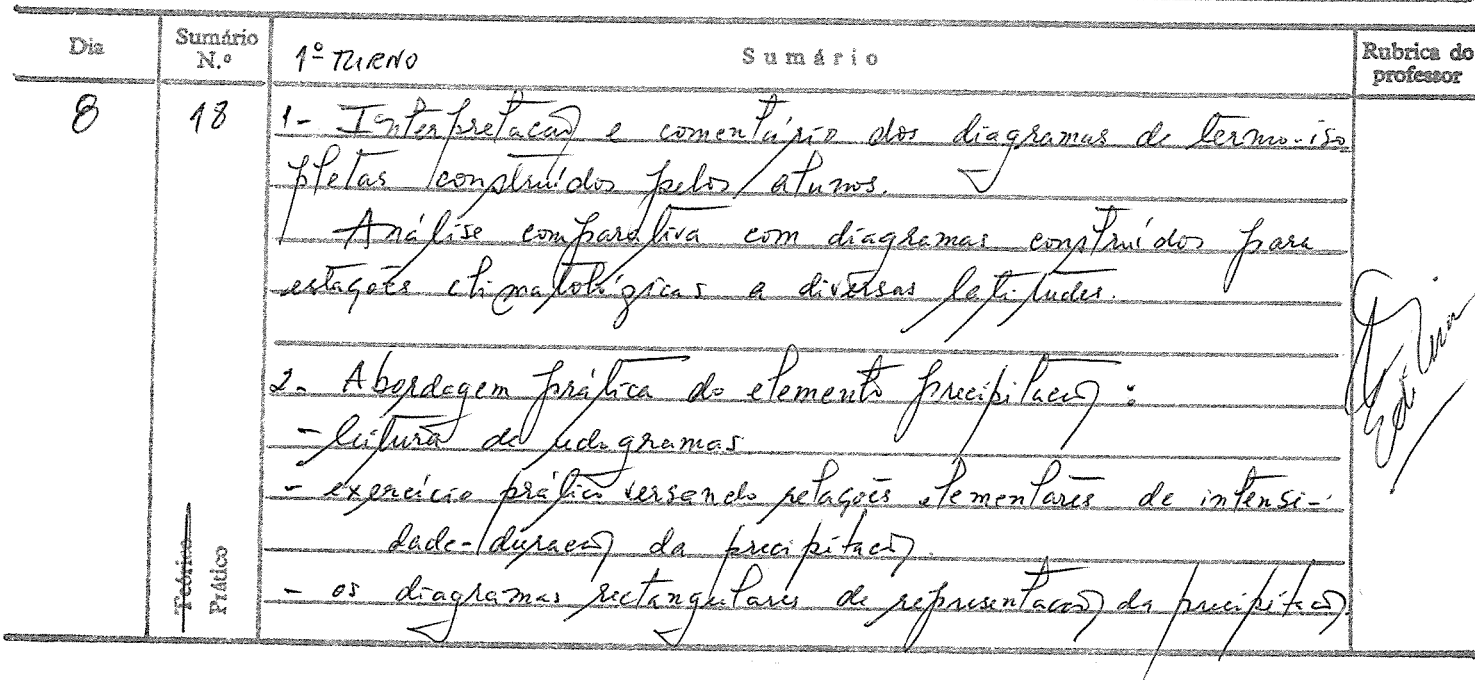 Dia Sumário N.º 1º TURNO Sumário Rubrica do professor
8 18 1- Interpretação e comentário dos diagramas de termo-iso
pletas construídos pelos alunos.
Análise comparativa com diagramas construídos para
estações climatológicas a diversas latitudes.
2- Abordagem prática do elemento precipitação:
- leitura de udogramas
- exercício prático versando relações elementares de intensi-
dade-duração da precipitação.
- os diagramas rectangulares de representação da precipitação.
Teórico
Prático